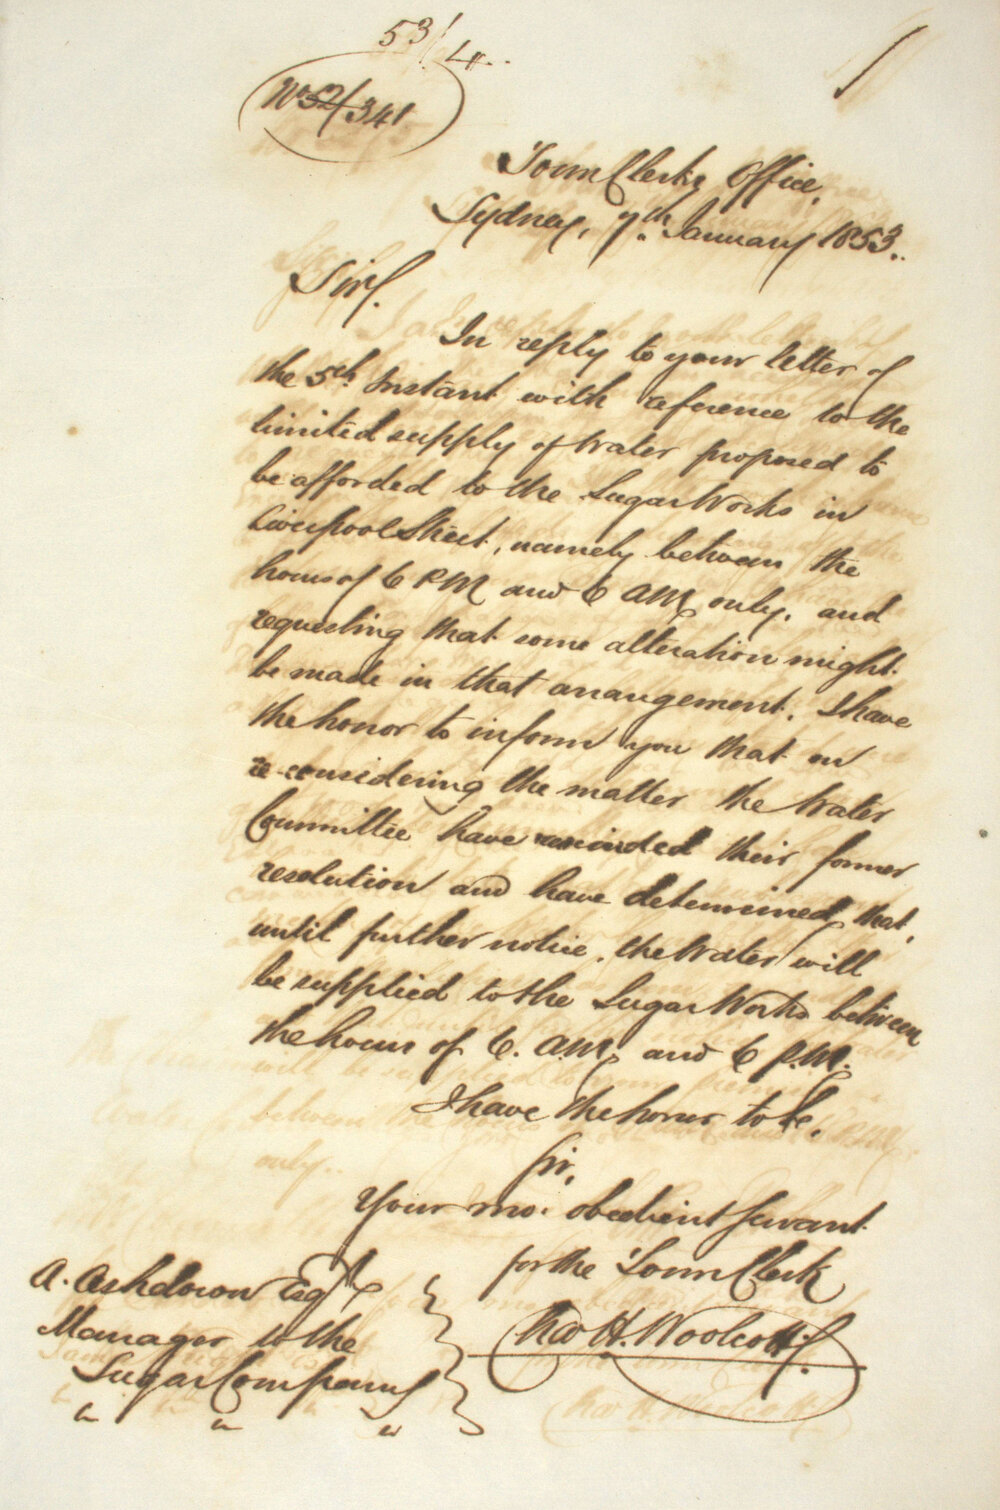 53/4..
No 52/341
Town Clerks Office,
Sydney, 7th January 1853..
Sir,
In reply to your letter of
the 5th Instant with reference to the
limited supply of Water proposed to
be afforded to the Sugar Works in
Liverpool Street, namely between the
hours of 6 P.M and 6 A.M, only, and
requesting that some alteration might
be made in that arrangement. I have
the honor to inform you that on
re-considering the matter the Water
Committee have rescinded their former
resolution and have determined, that,
until further notice, the Water will
be supplied to the Sugar Works between
the hours of 6. A.M, and 6 P.M.
I have the honor to be,
Sir,
Your mo. obedient Servant
for the Town Clerk
Chas H. Woolcott.
A. Ashdown Esqre
Manager to the
Sugar Company
" " "